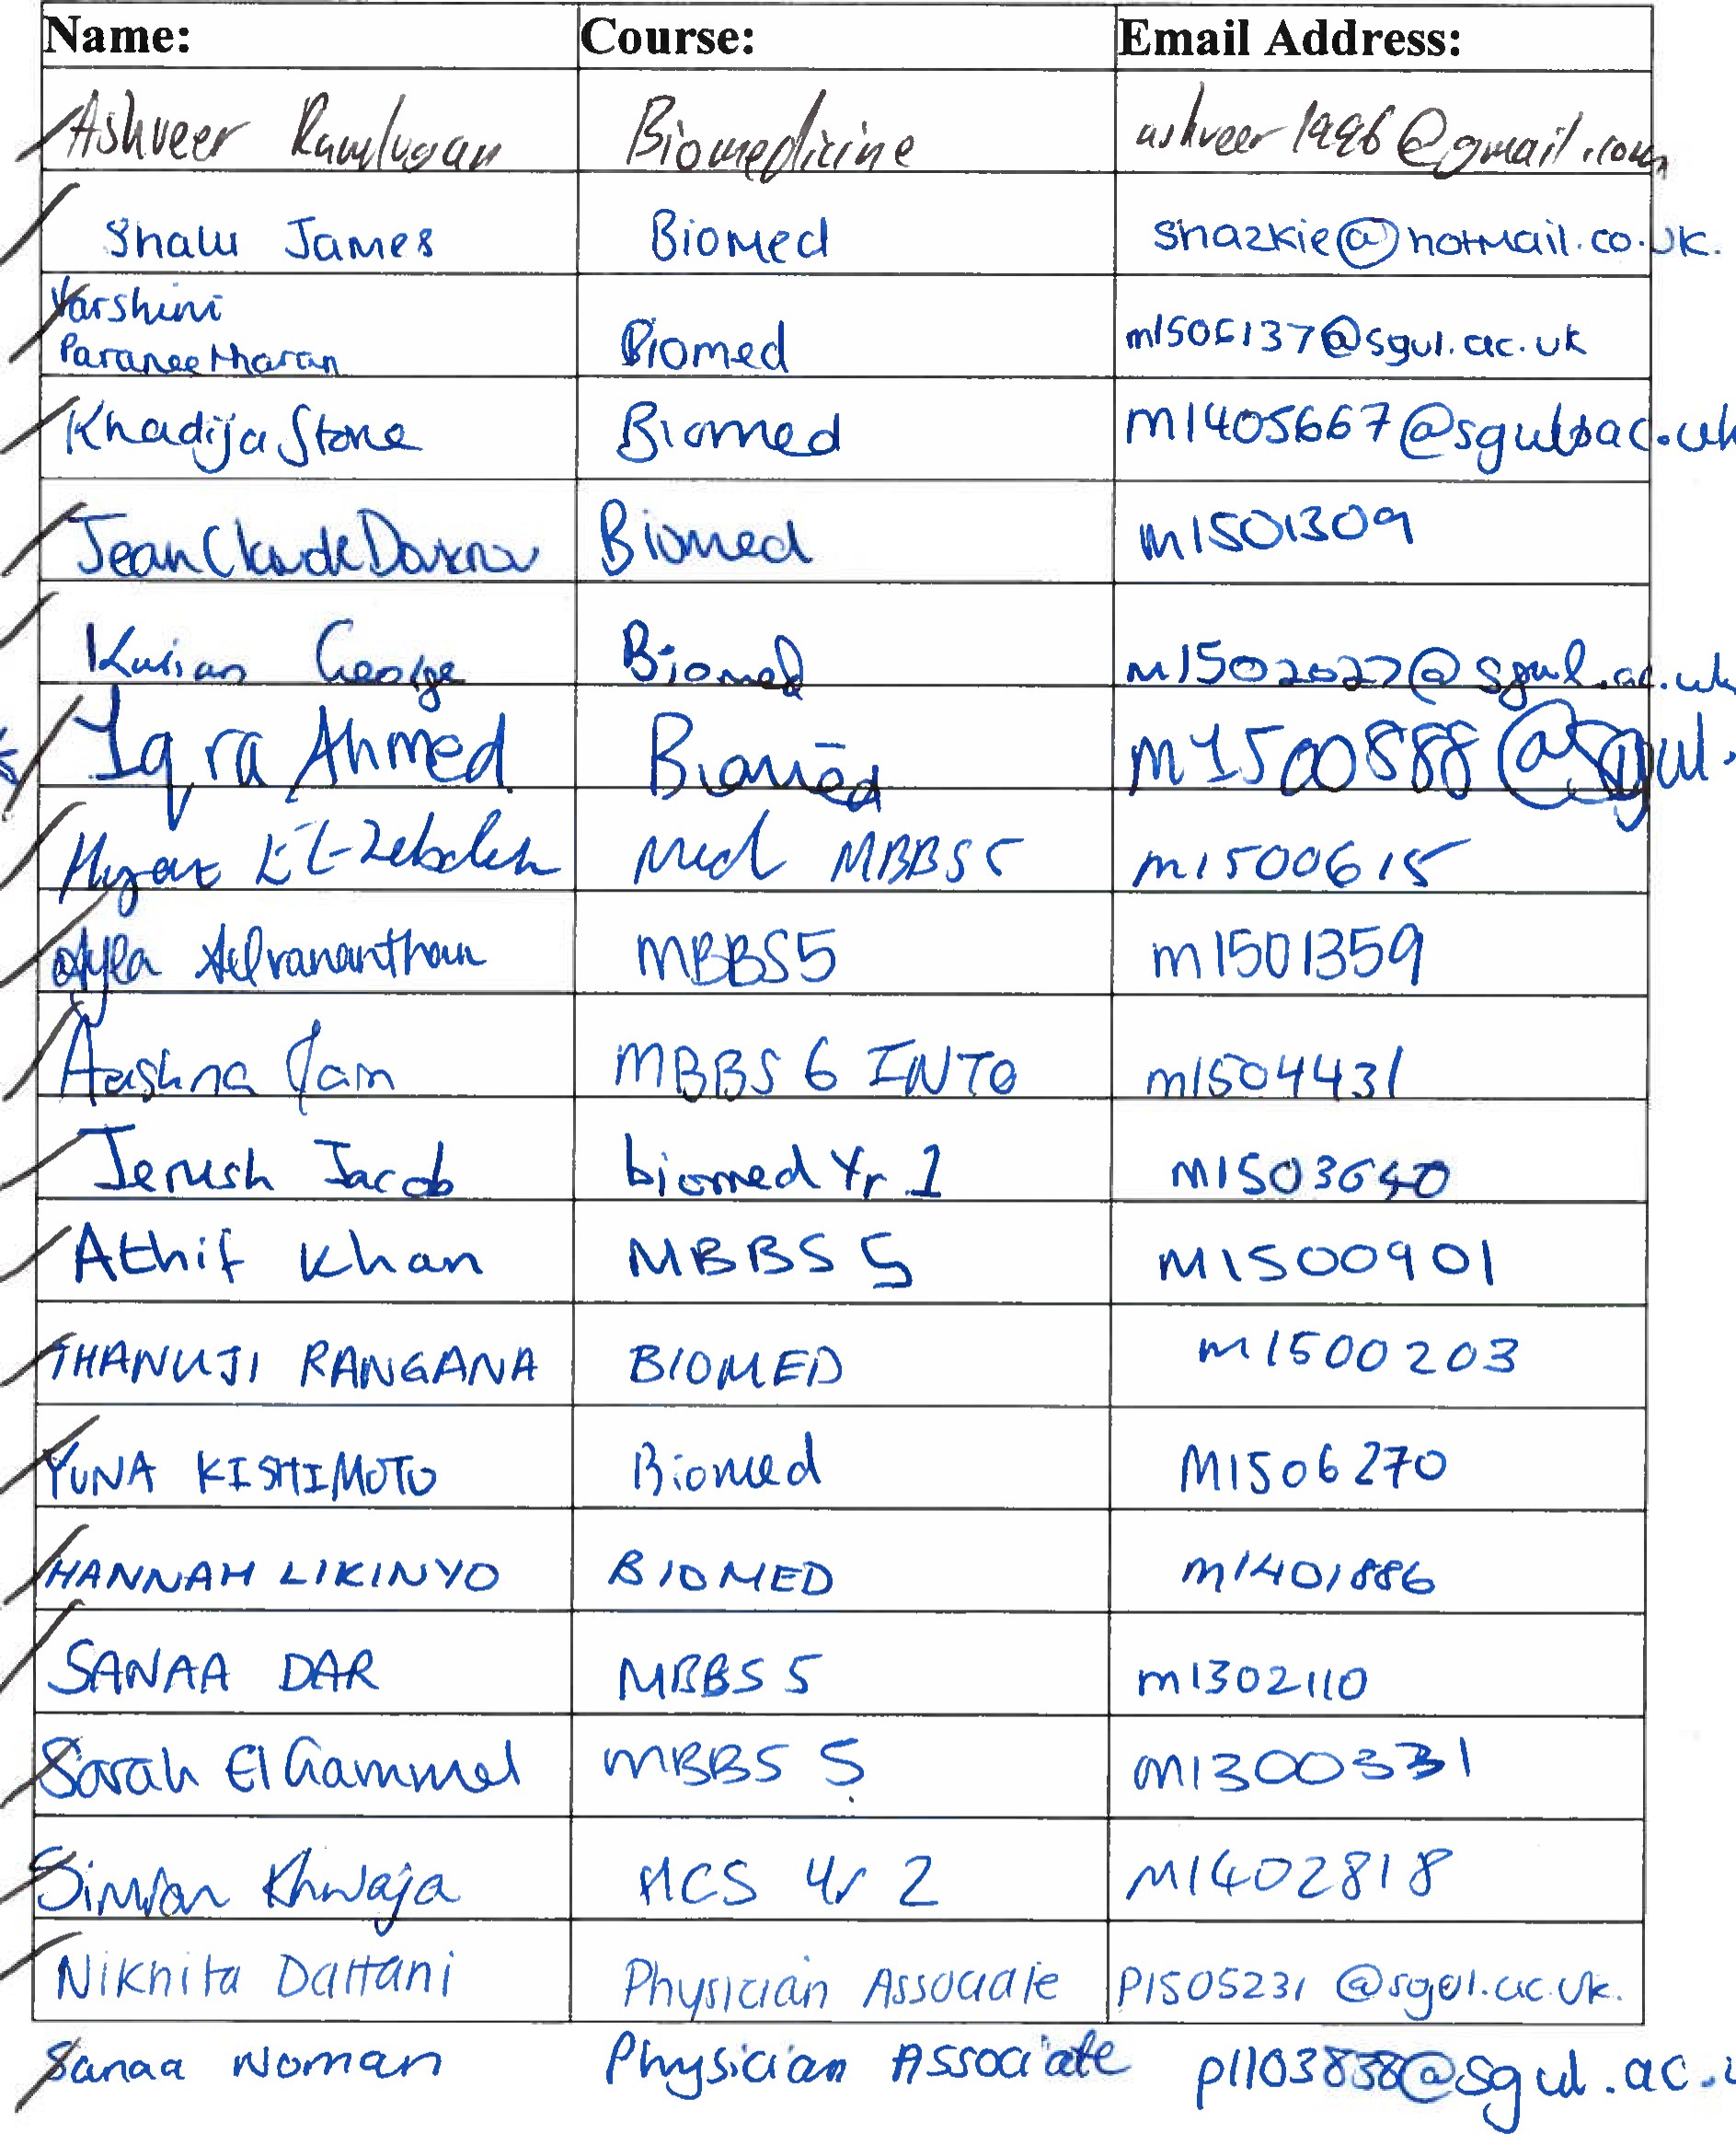 Name: Course: Email Address:
Ashveer Ramlugan Biomedicine ashveer1996@gmail.com
Shalu James Biomed shazkie@hotmail.co.uk.
Varshini
Paraneetharan Biomed m1506137@sgul.ac.uk
Khadija Stone Biomed m1405667@sgul.ac.uk
Jean Claude Biomed m1501309
Kurian George Biomed m1502027@sgul.ac.uk
Iqra Ahmed Biomed m1500888@sgul.
El-Zebdeh Med MBBS5 m1500615
Ayla MBBS5 m1501359
Aashna Jain MBBS 6 INTO m1504431
Jerush Jacob biomed Yr 1 m1503640
Athif Khan MBBS 5 M1500901
THANUJI RANGANA BIOMED m1500203
YUNA KISHIMOTO Biomed M1506270
HANNAH LIKINYO BIOMED m1401886
SANAA DAR MBBS 5 m1302110
Sarah ElGammal MBBS 5 m1300331
Simran Khwaja HCS Yr 2 M1402818
Nikhita Dattani Physician Associate P1505231 @sgul.ac.uk.
Sanaa Noman Physician Associate p1103838@sgul.ac.